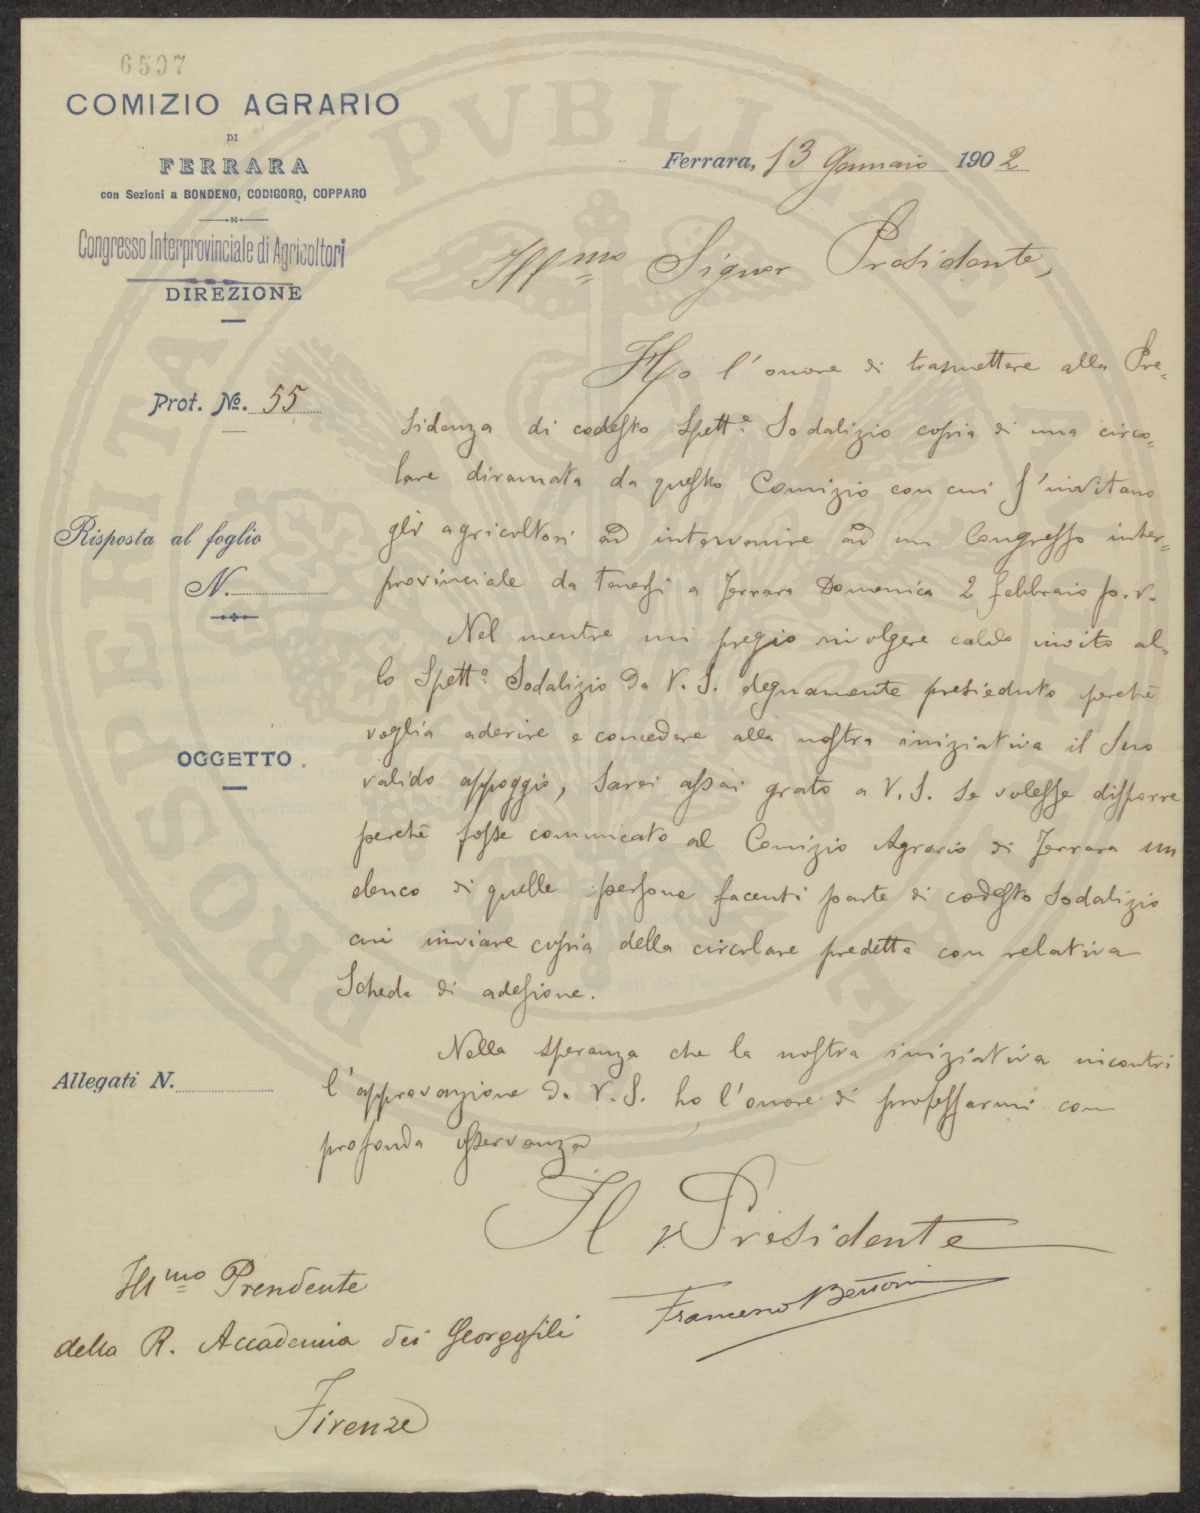 6507
COMIZIO AGRARIO
DI
FERRARA
con Sezioni a BONDENO, CODIGORO, COPPARO
Congresso Interprovinciale di Agricoltori
DIREZIONE
Ferrara, 13 Gennaio 1902
Ill.mo Signor Presidente,
Prot. No. 55
Ho l'onore di trasmettere alla Pre-
sidenza di codesto Spett.e Sodalizio copia di una circo-
lare diramata da questo Comizio con cui s'invitano
Risposta al foglio
N.
gli agricoltori ad intervenire ad un Congresso inter-
provinciale da tenersi a Ferrara Domenica 2 febbraio p.v.
Nel mentre mi pregio rivolgere caldo invito al-
lo Spett.e Sodalizio da V. S. degnamente presieduto perchè
voglia aderire e concedere alla nostra iniziativa il Suo
OGGETTO
valido appoggio, sarei assai grato a V. S. se volesse disporre
perchè fosse comunicato al Comizio Agrario di Ferrara un
elenco di quelle persone facenti parte di codesto Sodalizio
cui inviare copia della circolare predetta con relativa
Scheda di adesione.
Nella speranza che la nostra iniziativa incontri
Allegati N.
l'approvazione di V. S. ho l'onore di professarmi con
profonda osservanza
Il V. Presidente
Francesco
Ill.mo Presidente
della R. Accademia dei Georgofili
Firenze
PROSPERITATI PVBLICAE AVGENDAE